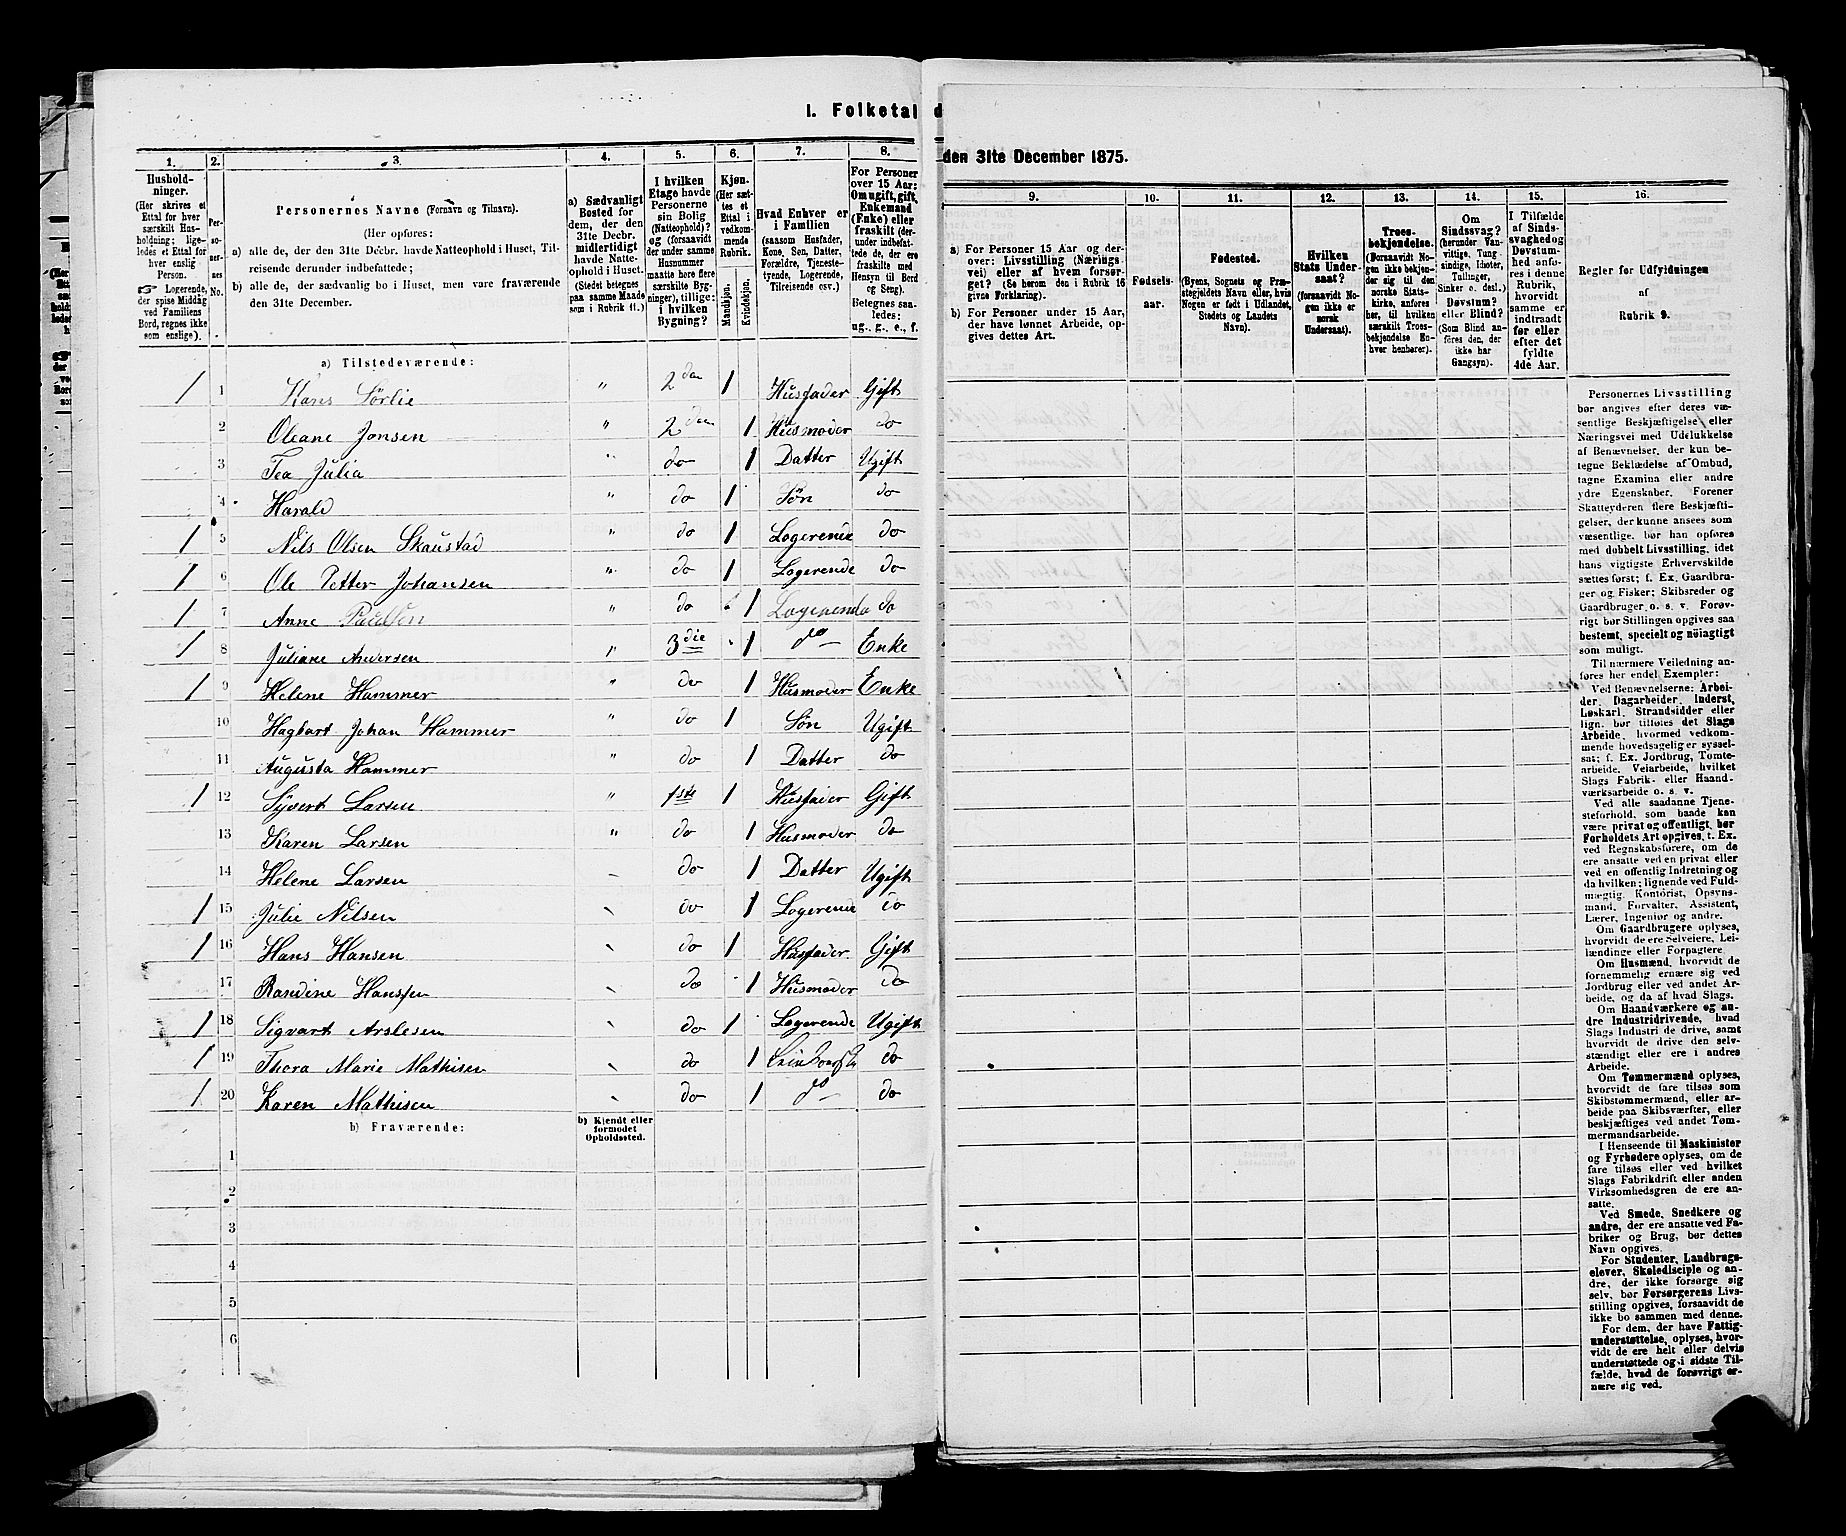 I. Folketal d
den 31te December 1875.
1. 2. 3. 4. 5. 6. 7. 8.
Hushold-
ninger.
(Her skrives et
Ettal for hver
særskilt Hus-
holdning; lige-
ledes et Ettal for
hver enslig
Person.
☞ Logerende,
der spise Middag
ved Familiens
Bord, regnes ikke
som enslige).
Per-
so-
ner-
nes
No.
Personernes Navne (Fornavn og Tilnavn).
(Her opføres:
a) alle de, der den 31te Decbr. havde Natteophold i Huset, Til-
reisende derunder indbefattede;
b) alle de, der sædvanlig bo i Huset, men vare fraværende
den 31te December.
a) Sædvanligt
Bosted for
dem, der den
31te Decbr.
midlertidigt
havde Natte-
ophold i Huset.
(Stedet betegnes
paa samme Maade
som i Rubrik 11.)
I hvilken
Etage havde
Personerne
sin Bolig
(Natteophold)?
og (forsaavidt
der under samme
Husnummer
maatte høre flere
særskilte Byg-
ninger), tillige:
i hvilken
Bygning?
Kjøn.
(Her sæt-
tes et
Ettal i
vedkom-
mende
Rubrik.
Mandkjøn.
Kvindekjøn.
Hvad Enhver er
i Familien
(saasom Husfader,
Kone, Søn, Datter,
Forældre, Tjeneste-
tyende, Logerende,
Tilreisende osv.)
For Personer
over 15 Aar:
Om ugift, gift,
Enkemand
(Enke) eller
fraskilt (der-
under indbefat-
tede de, der ere
fraskilte med
Hensyn til Bord
og Seng).
Betegnes saa-
ledes:
ug., g., e., f.
a) Tilstedeværende:
1 1 Hans Sörlie " 2den 1 Husfader Gift
2 Oleane Jonsen " 2den 1 Husmoder do
3 Tea Julia " do 1 Datter Ugift
4 Harald " do 1 Sön do
1 5 Nils Olsen Skaustad " do 1 Logerende do
1 6 Ole Petter Johansen " do 1 Logerende do
1 7 Anne " do 1 Logerende do
1 8 Juliane Andersen " 3die 1 do Enke
1 9 Helene Hammer " do 1 Husmoder Enke
10 Hagbart Johan Hammer " do 1 Sön Ugift
11 Augusta Hammer " do 1 Datter do
1 12 Syvert Larsen " 1ste 1 Husfader Gift
13 Karen Larsen " do 1 Husmoder do
14 Helene Larsen do 1 Datter Ugift
1 15 Julie Nilsen do 1 Logerende do
1 16 Hans Hansen do 1 Husfader Gift
17 Randine Hanssen do 1 Husmoder do
1 18 Sigvart Arslesen do 1 Logerende Ugift
1 19 Thora Marie Mathisen do 1 do
1 20 Karen Mathisen do 1 do do
b) Fraværende:
b) Kjendt eller
formodet
Opholdssted.
1
2
3
4
5
6
9. 10. 11. 12. 13. 14. 15. 16.
a) For Personer 15 Aar og der-
over: Livsstilling (Nærings-
vei) eller af hvem forsør-
get? (Se herom den i Rubrik 16
givne Forklaring).
b) For Personer under 15 Aar,
der have lønnet Arbeide, op-
gives dettes Art.
Fødsels-
aar.
Fødested.
(Byens, Sognets og Præ-
stegjeldets Navn eller, hvis
Nogen er født i Udlandet,
Stedets og Landets
Navn).
Hvilken
Stats Under-
saat?
(forsaavidt No-
gen ikke er
norsk
Undersaat).
Troes-
bekjendelse.
(Forsaavidt No-
gen ikke bekjen-
der sig til den
norske Stats-
kirke, anføres
her, til hvilken
særskilt Troes-
bekjendelse En-
hver henhører).
Om
Sindssvag?
(herunder Van-
vittige, Tung-
sindige, Idioter,
Tullinger,
Sinker o. desl.)
Døvstum?
eller Blind?
(Som Blind an-
føres den, der
ikke har
Gangsyn).
I Tilfælde
af Sinds-
svaghed og
Døvstum-
hed anfø-
res i denne
Rubrik,
hvorvidt
samme er
indtraadt
før eller
efter det
fyldte
4de Aar.
Regler for Udfyldningen
af
Rubrik 9.
Personernes Livsstilling
bør angives efter deres væ-
sentlige Beskjæftigelse eller
Næringsvei med Udelukkelse
af Benævnelser, der kun be-
tegne Beklædelse af Ombud,
tagne Examina eller andre
ydre Egenskaber. Forener
Skatteyderen flere Beskjæfti-
gelser, der kunne ansees som
væsentlige, bør han opføres
med dobbelt Livsstilling, idet
hans vigtigste Erhvervskilde
sættes først; f. Ex. Gaardbru-
ger og Fisker; Skibsreder og
Gaardbruger o. s. v. Forøv-
rigt bør Stillingen opgives saa
bestemt, specielt og nøiagtigt
som muligt.
Til nærmere Veiledning an-
føres her endel Exempler:
Ved Benævnelserne: Arbei-
der, Dagarbeider, Inderst,
Løskarl, Strandsidder eller
lign. bør tilføies det Slags
Arbeide, hvormed vedkom-
mende hovedsagelig er syssel-
sat; f. Ex. Jordbrug, Tomte-
arbeide, Veiarbeide, hvilket
Slags Fabrik- eller Haand-
værksarbeide o. s. v.
Ved alle saadanne Tjene-
steforhold, som baade kan
være privat og offentligt, bør
Forholdets Art opgives, t. Ex.
ved Regnskabsførere, om de
ere ansatte ved en privat eller
ved en offentlig Indretning og
da hvilken; lignende ved Fuld-
mægtig, Kontorist, Opsyns-
mand, Forvalter, Assistent,
Lærer, Ingeniør og andre.
Om Gaardbrugere oplyses,
hvorvidt de ere Selveiere, Lei-
lændinge eller Forpagtere.
Om Husmænd, hvorvidt de
fornemmelig ernære sig ved
Jordbrug eller ved andet Ar-
beide, og da af hvad Slags.
Om Haandværkere og an-
dre Industridrivende, hvad
Slags Industri de drive, samt
hvorvidt de drive den selv-
stændigt eller ere i andres
Arbeide.
Om Tømmermænd oplyses,
hvorvidt de fare tilsøs som
Skibstømmermænd, eller ar-
beide paa Skibsværfter, eller
beskjæftiges ved andet Tøm-
mermandsarbeide.
I Henseende til Maskinister
og Fyrbødere oplyses, om de
fare tilsøs eller ved hvilket
Slags Fabrikdrift eller anden
Virksomhedsgren de ere an-
satte.
Ved Smede, Snedkere og
andre, der ere ansatte ved Fa-
briker og Brug, bør dettes
Navn opgives.
For Studenter, Landbrugs-
elever, Skoledisciple og an-
dre, der ikke forsørge sig
selv, bør Forsørgerens Livs-
stilling opgives, forsaavidt de
ikke bo sammen med denne.
For dem, der have Fattig-
understøttelse, oplyses, hvor-
vidt de ere helt eller delvis
understøttede og i sidste Til-
fælde, hvad de forøvrigt er-
nære sig ved.